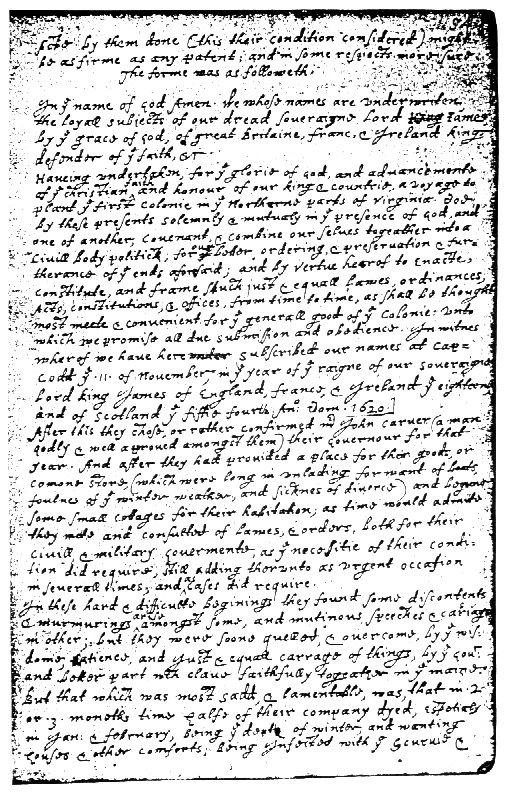 shee by them done (this their condition considered) might
be as firme as any patent; and in some respects more sure.
The forme was as followeth.
In yͤ name of god Amen. We whose names are underwriten,
the loyall subjects of our dread soveraigne Lord King James
by yͤ grace of god, of great Britaine, franc, & Ireland king,
defender of yͤ faith, &c
Haveing undertaken, for yͤ glorie of god, and advancemente
of yͤ christian faith and honour of our king & countrie, a voyage to
plant yͤ first colonie in yͤ Northerne parts of virginia. Doe
by these presents solemnly & mutualy in yͤ presence of god, and
one of another, covenant, & combine our selves togeather into a
Civill body politick; for yͬ better ordering, & preservation & fur=
therance of yͤ ends aforsaid; and by vertue hearof to Enacte,
constitute, and frame shuch just & equall lawes, ordinances,
Acts, constitutions, & offices, from time to time, as shall be thought
most meete & convenient for yͤ generall good of yͤ Colonie: unto
which we promise all due submission and obedience. In witnes
wherof we have here under subscribed our names at Cap=
Codd yͤ .11. of November, in yͤ year of yͤ raigne of our soveraigne
Lord king James of England, france, & Ireland yͤ eighteenth
and of scotland yͤ fiftie fourth. Anͦ: Dom. 1620.]
After this they chose, or rather confirmed mͬ John carver (a man
godly & well approved amongst them) their Governour for that
year. And after they had provided a place for their goods, or
comone store, (which were long in unlading for want of boats,
foulnes of yͤ winter weather, and sicknes of diverce) and begune
some small cottages for their habitation; as time would admitte
they mete and consulted of lawes, & orders, both for their
civill & military Govermente, as yͤ necessitie of their condi=
tion did require, still adding therunto as urgent occasion
in severall times, and as cases did require.
In these hard & difficulte beginings they found some discontents
& murmurings arise amongst some, and mutinous speeches & cariags
in other; but they were soone quelled, & overcome, by yͤ wis=
dome, patience, and just & equall carrage of things, by yͤ Govͬ
and better part wͨh clave faithfully togeather in yͤ maine.
But that which was most sadd, & lamentable, was, that in .2.
or .3. moneths time halfe of their company dyed, espetialy
in Jan: & february, being yͤ depth of winter, and wanting
houses & other comforts; being Infected with yͤ Scurvie &